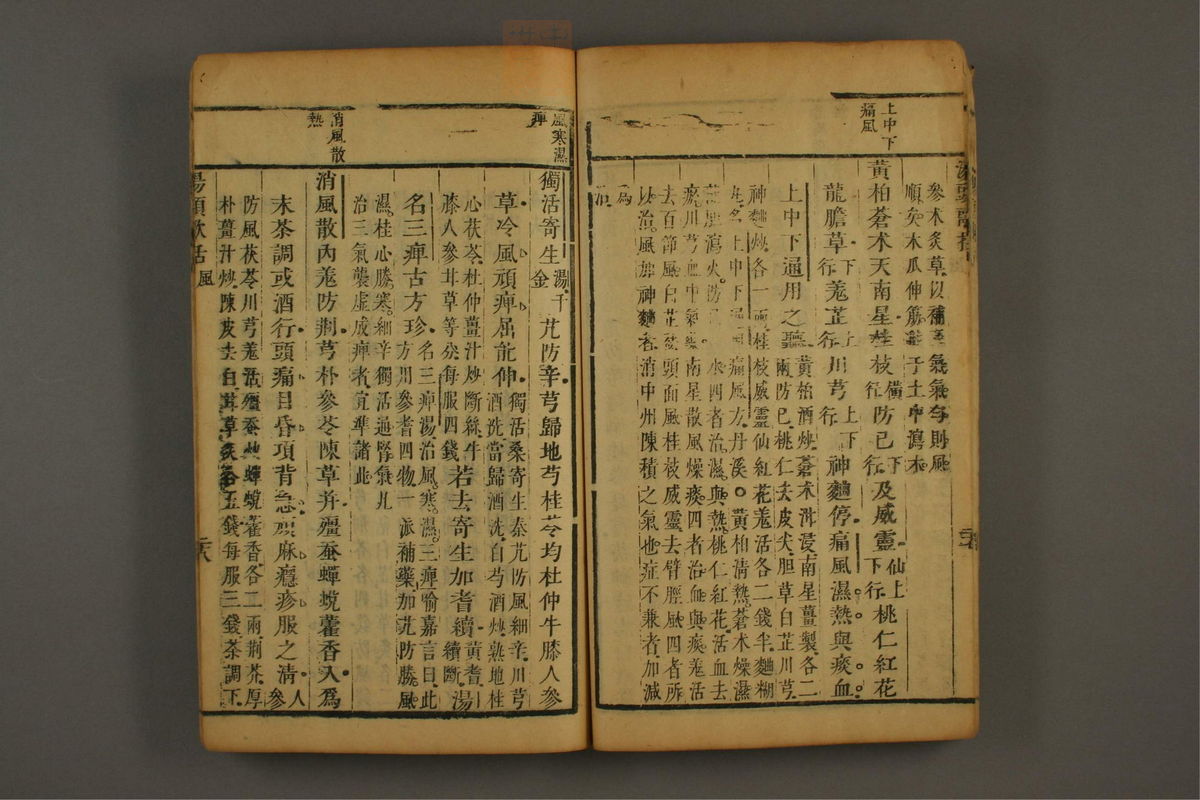 上中下
痛風
參木炙草以補
順矣木瓜伸筋
黃柏蒼朮天南星桂枝行橫防己行下及威靈仙上下行桃仁紅花
龍膽草下行羌芷行上川芎上下行神麯停痛風濕熱與痰血
上中下通用之聽黃柏酒炒蒼朮泔浸南星薑製各二
兩防己桃仁去皮尖胆草白芷川芎
神麯炒各一兩桂枝威靈仙紅花羌活各二錢半麯糊
丸名上中下通用痛風方丹溪○黃柏清熱蒼朮燥濕
龍胆瀉火防己行水四者治濕與熱桃仁紅花活血去
瘀川芎血中氣藥南星散風燥痰四者治血與痰羌活
去百節風白芷袪頭面風桂枝威靈去臂脛風四者所
以治風加神麯者消中州陳積之氣也症不兼者加減
為
治
風寒濕
痺
獨活寄生湯千金艽防辛芎歸地芍桂苓均杜仲牛膝人參
草冷風頑痺屈能伸獨活桑寄生秦艽防風細辛川芎
酒洗當歸酒洗白芍酒炒熟地桂
心茯苓杜仲薑汁炒斷絲牛
膝人參甘草等分每服四錢若去寄生加耆續黃耆續斷湯
名三痺古方珍名三痺湯治風寒濕三痺喻嘉言曰此
方用參耆四物一派補藥加艽防勝風
濕桂心勝寒細辛獨活通腎氣凡
治三氣襲虛成痺者宜準諸此
消風散
熱
消風散內羌防荊芎朴參苓陳草并殭蚕蟬蛻藿香入為
末茶調或酒行頭痛目昏項背急頑麻癮疹服之清人參
防風茯苓川芎羌活殭蚕炒蟬蛻藿香各二兩荊芥厚
朴薑汁炒陳皮去白甘草炙各五錢每服三錢茶調下
湯頭歌括
風
二八